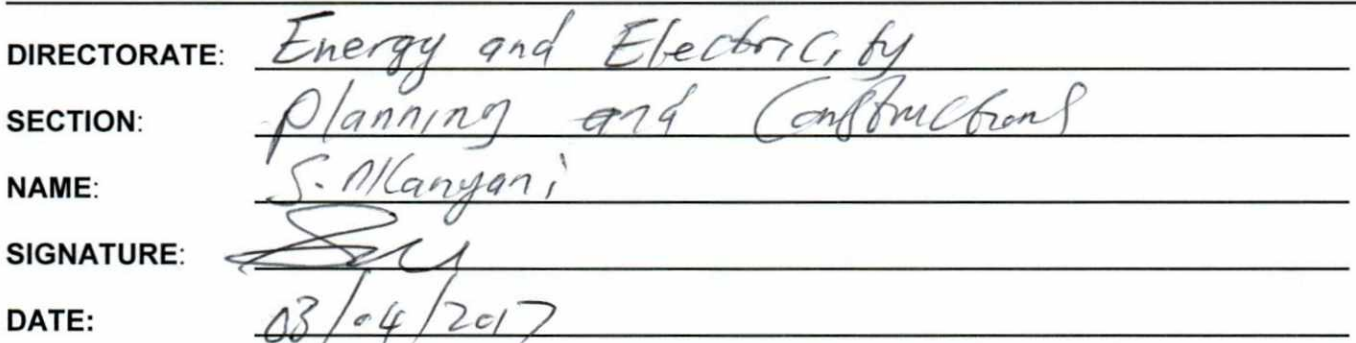 DIRECTORATE: Energy and Electricity
SECTION: Planning and Constructions
NAME: S. Nkanyani
SIGNATURE:
DATE: 03/04/2017